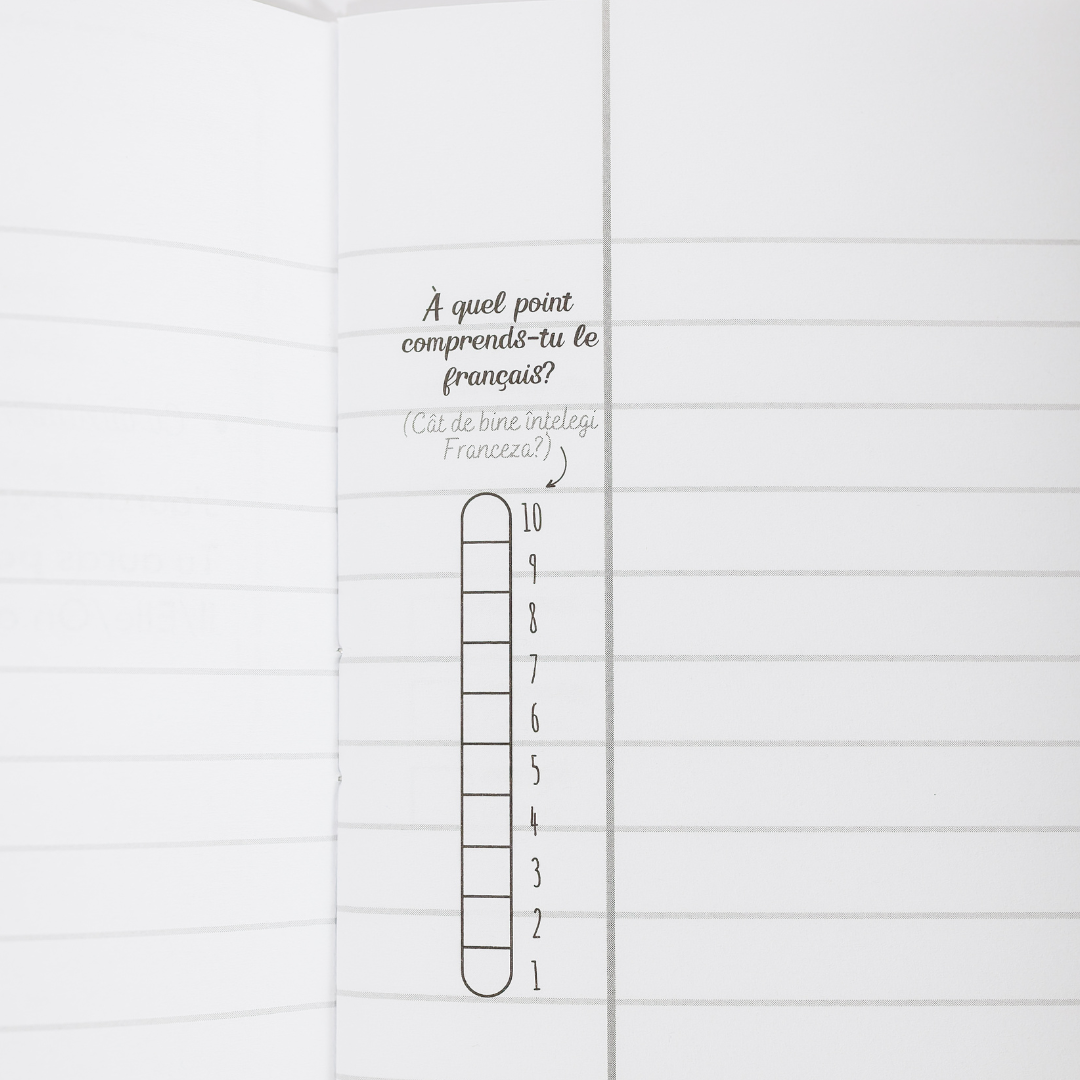 À quel point
comprends-tu le
français?
(Cât de bine înțelegi
Franceza?)
10
9
8
7
6
5
4
3
2
1